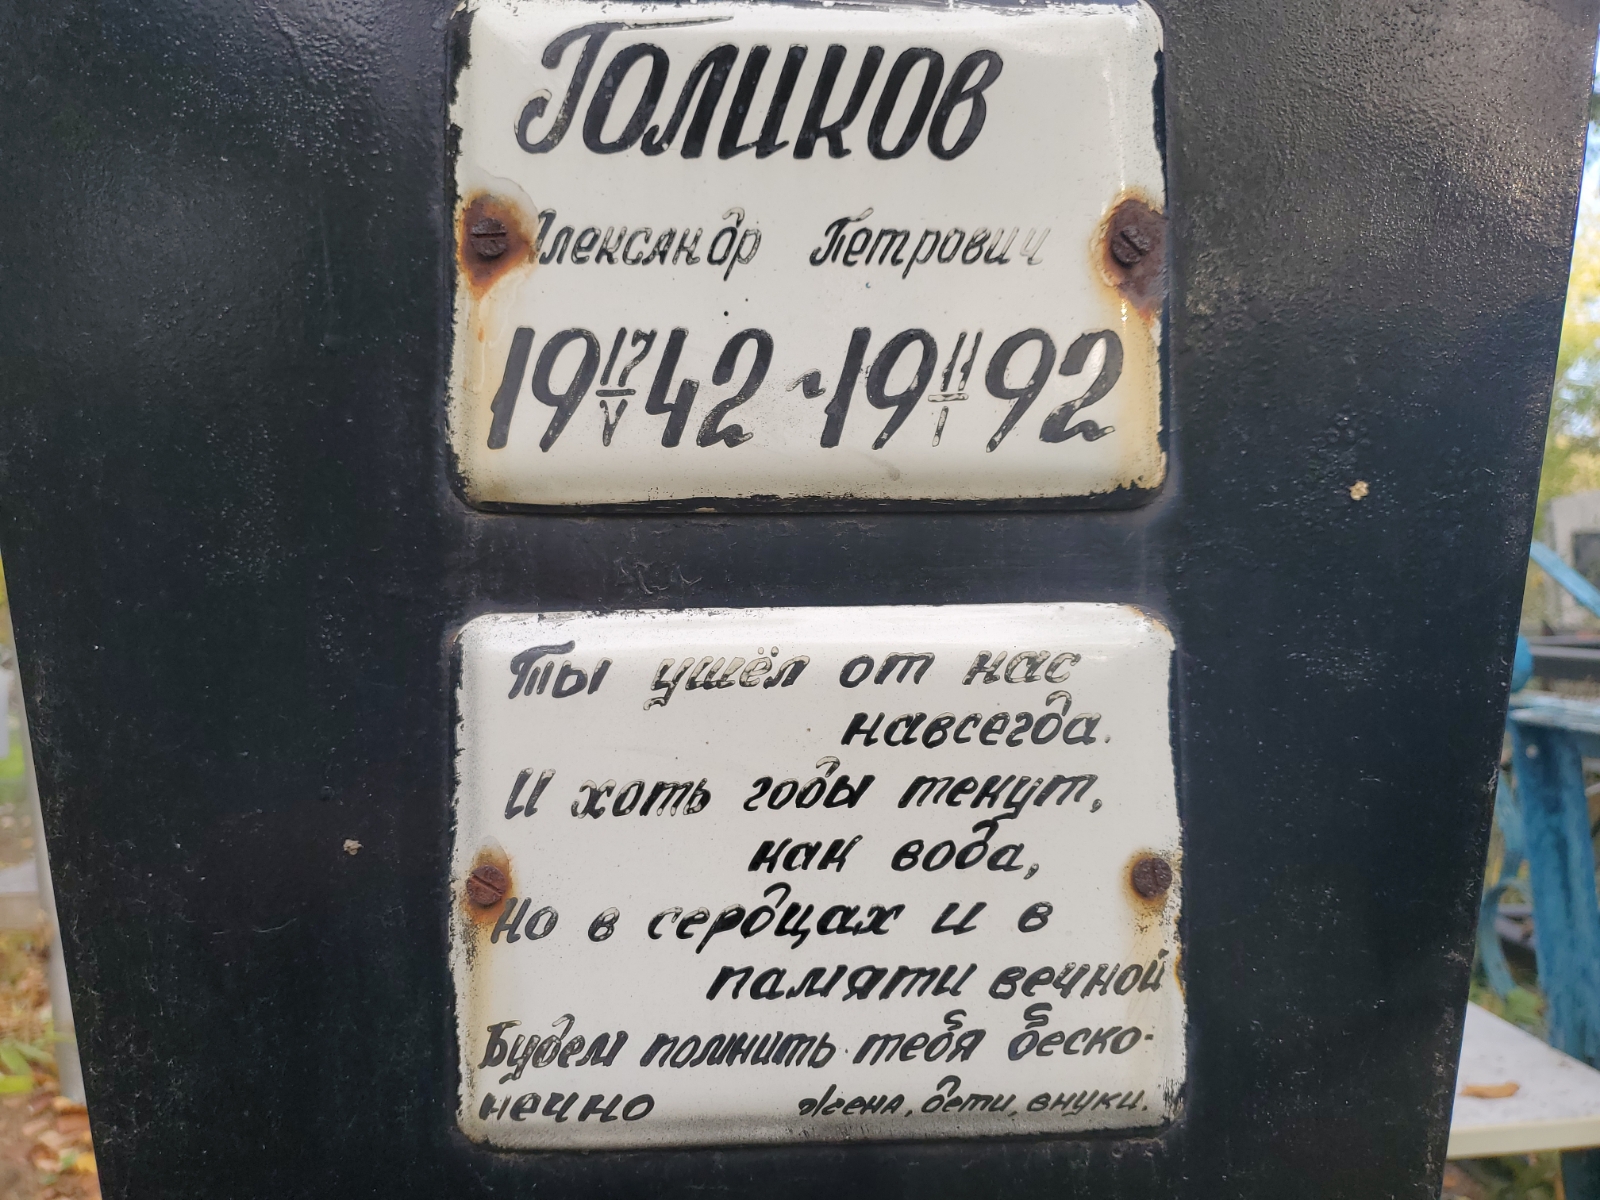 Голиков
Александр Петрович
19 17/V 42 ~ 19 11/I 92
Ты ушёл от нас
навсегда.
И хоть годы текут,
как вода,
Но в сердцах и в
памяти вечной
Будем помнить тебя беско-
нечно жена, дети, внуки.